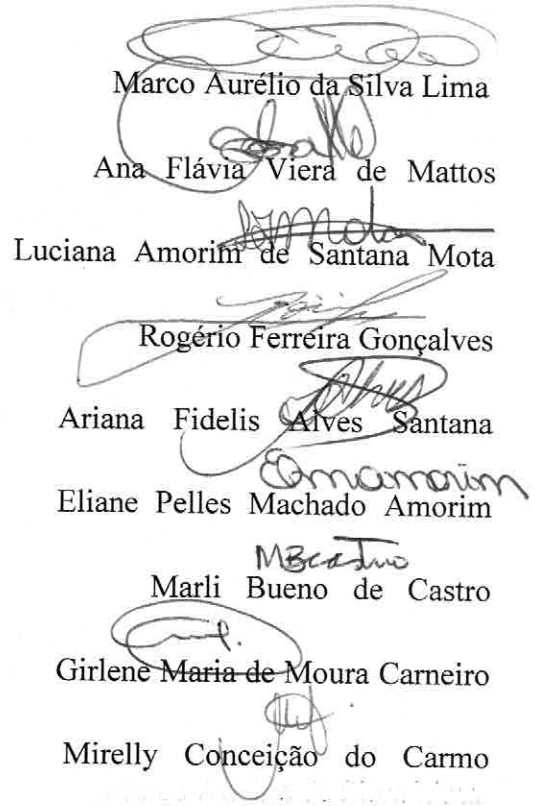 Marco Aurélio da Silva Lima
Ana Flávia Viera de Mattos
Luciana Amorim de Santana Mota
Rogério Ferreira Gonçalves
Ariana Fidelis Alves Santana
Emamorim
Eliane Pelles Machado Amorim
MBcastro
Marli Bueno de Castro
Girlene Maria de Moura Carneiro
Mirelly Conceição do Carmo